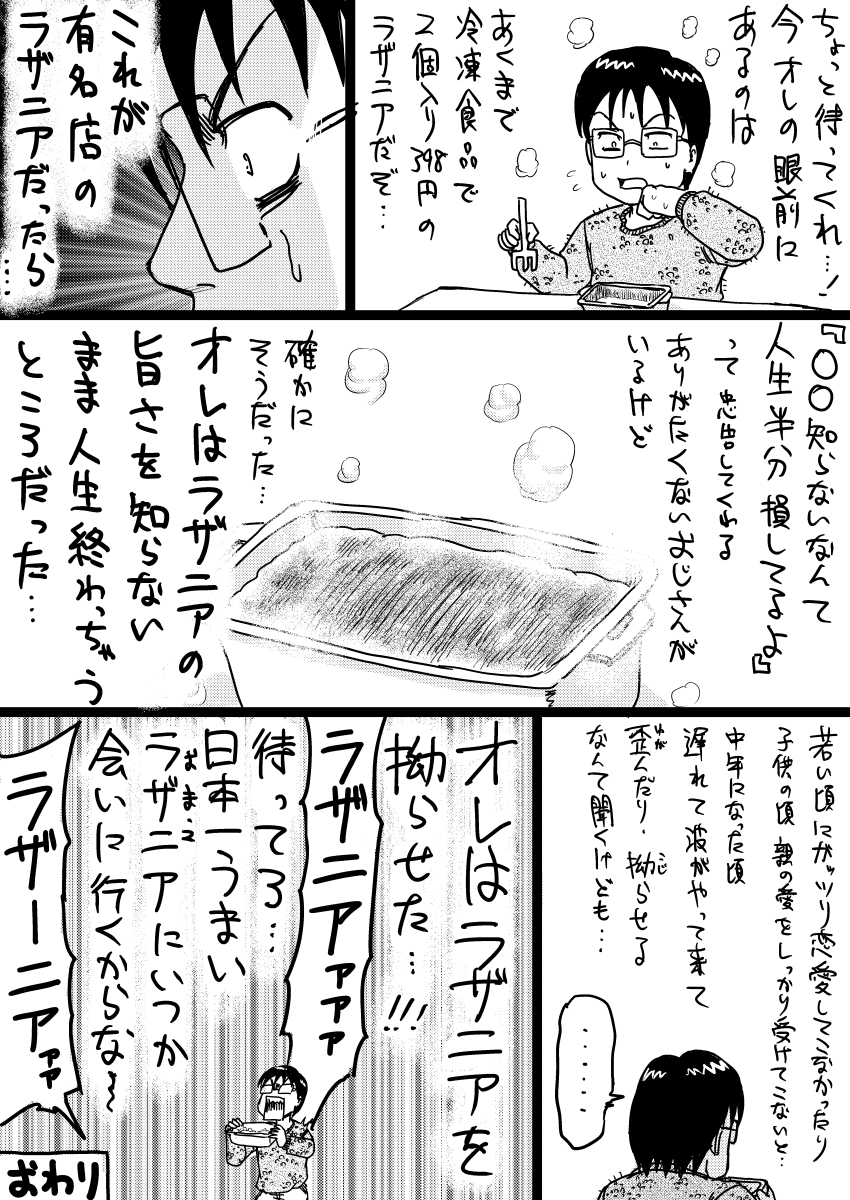 ちょっと待ってくれ…!
今オレの眼前に
あるのは
あくまで
冷凍食品で
2個入り398円の
ラザニアだぞ…
これが
有名店の
ラザニアだったら
……
『○○知らないなんて
人生半分損してるよ』
って忠告してくれる
ありがたくないおじさんが
いるけど
確かに
そうだった…
オレはラザニアの
旨さを知らない
まま人生終わっちゃう
ところだった…
若い頃にガッツリ恋愛してこなかったり
子供の頃親の愛をしっかり受けてこないと…
中年になった頃
遅れて波がやって来て
歪んだり、拗らせる
なんて聞くけども…
……
オレはラザニアを
拗らせた…!!!
ラザニアァァァ
待ってろ…
日本一うまい
ラザニアにいつか
会いに行くからな〜
ラザーニアァァ
おわり